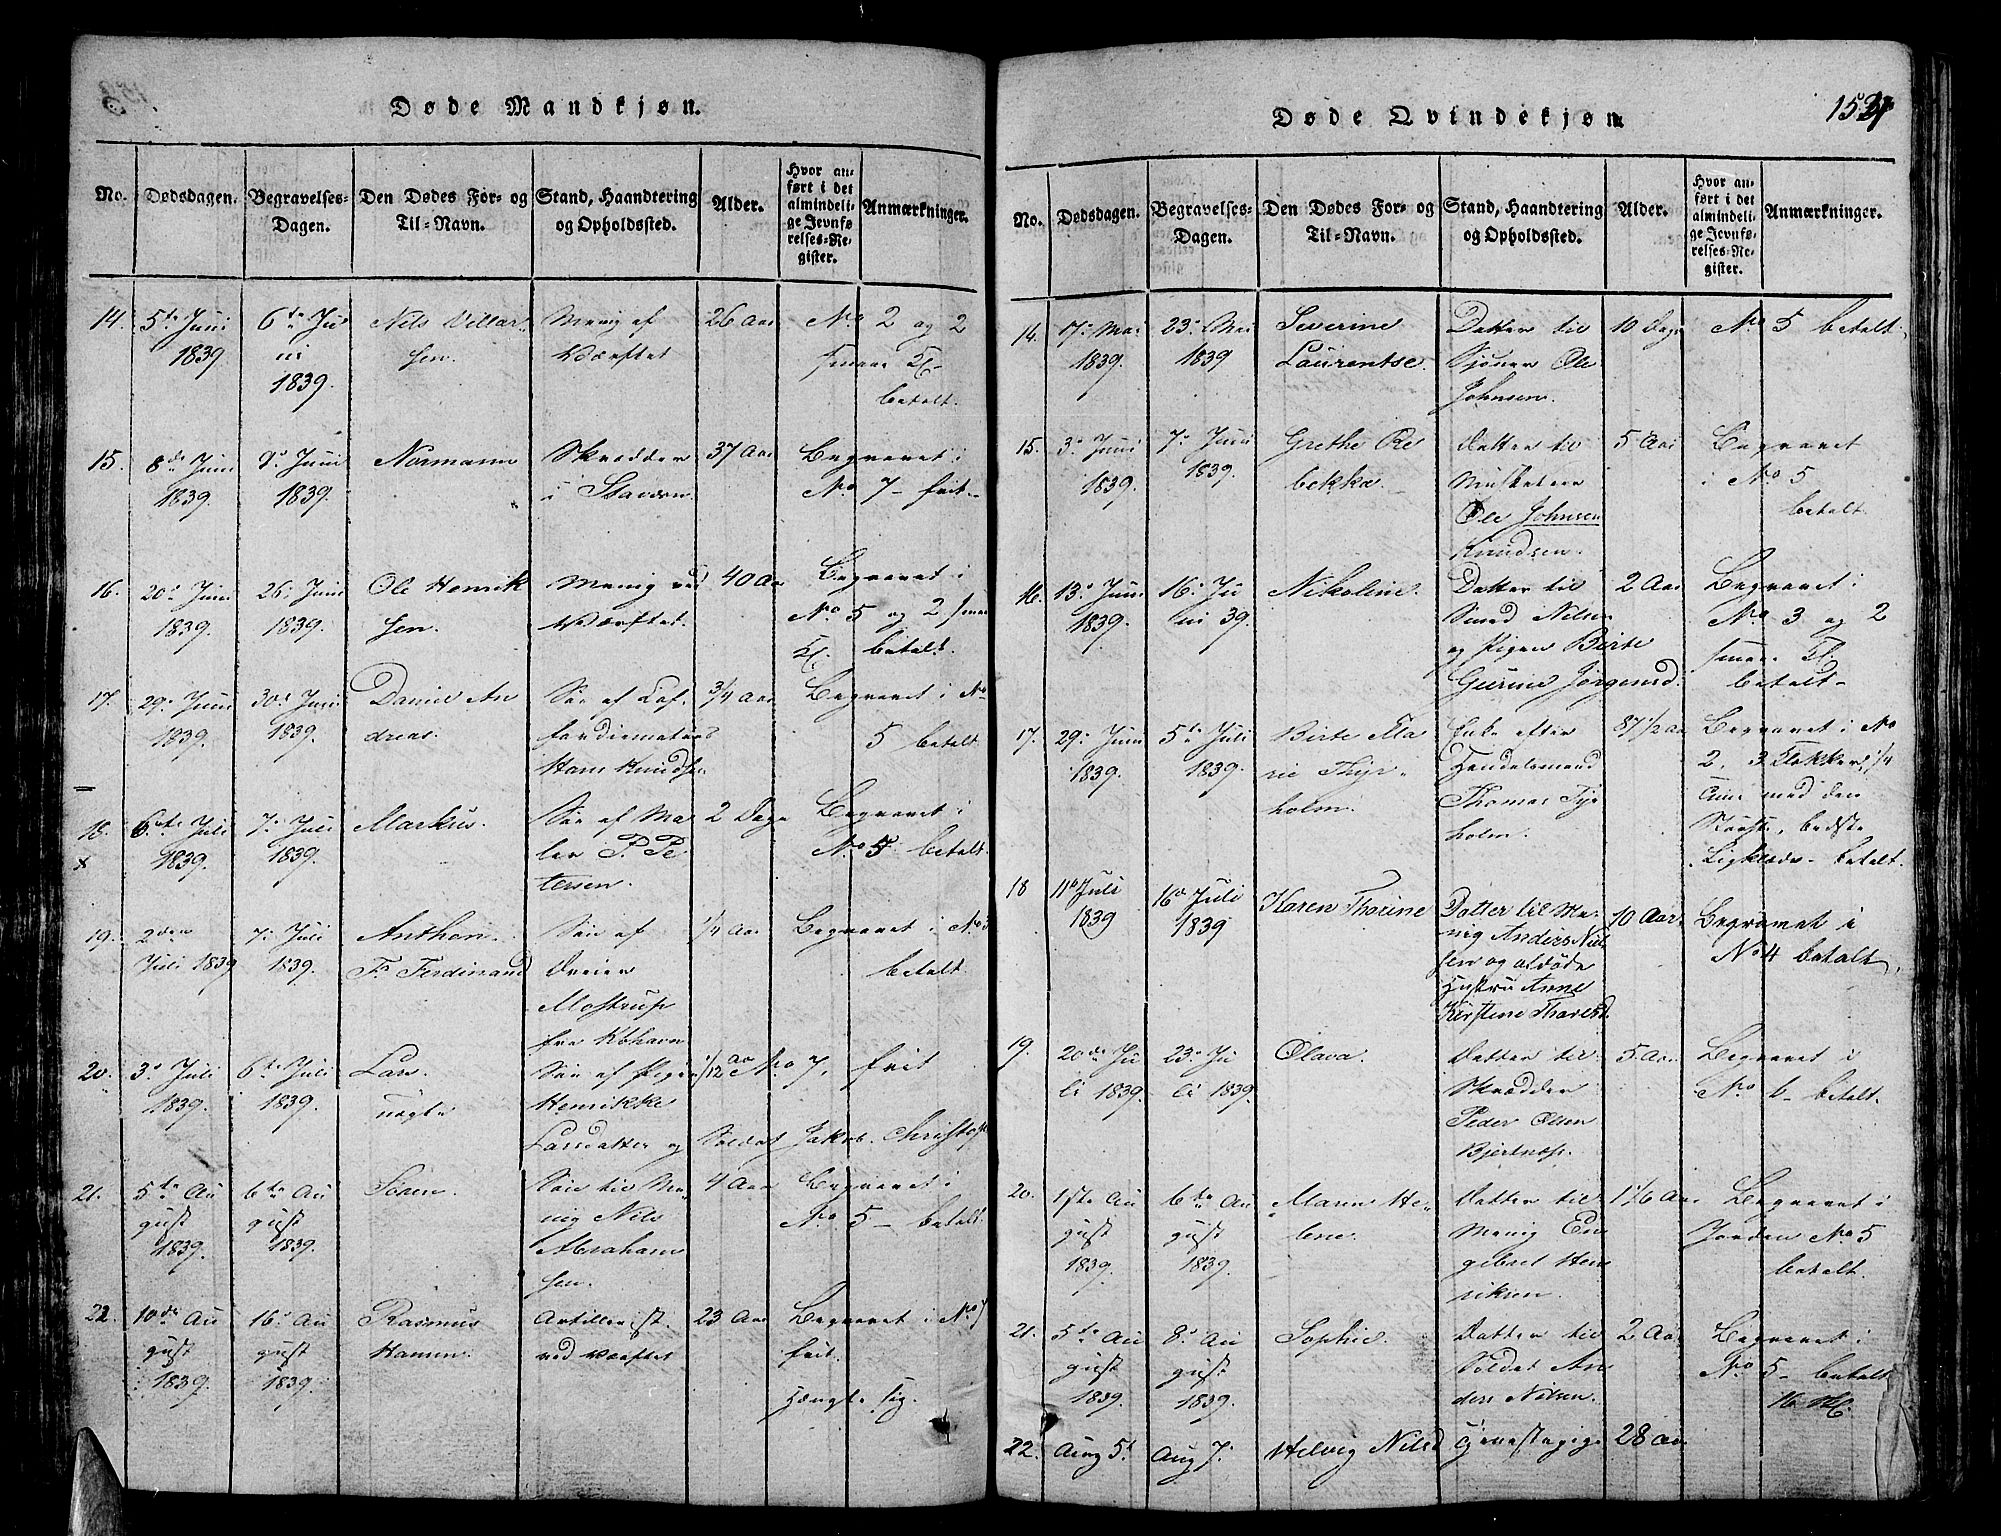 Døde Mandkjøn.
No.
Dødsdagen.
Begravelses-
Dagen.
Den Dødes For- og
Til-Navn.
Stand, Haandtering
og Opholdssted.
Alder.
Hvor an-
ført i det
almindeli-
ge Jevnfø-
relses-Re-
gister.
Anmærkninger.
14.
5te Juni
1839.
6te Ju
ni
1839.
Nils Villar
sen.
Menig af
Værftet
26 Aar
No 2 og 2
smaae Kl.
betalt.
15.
8de Juni
1839.
9e Juni
1839.
Normann
Skrædder
i Stavern
37 Aar
Begravet i
No 7 - frit.
16.
20de Juni
1839.
26e Juni
1839.
Ole Henrik
sen.
Menig ved
Værftet.
40 Aar
Begravet i
No 5 og 2 smaae
Kl. betalt.
17.
29e Juni
1839.
30te Juni
1839.
Daniel An
dreas.
Søn af Cof-
fardiematros
Hans Knudsen
3/4 Aar
Begravet i No
5 betalt
18.
6te Juli
1839.
7e Juli
1839.
Markus.
Søn af Ma
ler P. Pe
tersen.
2 Dage
Begravet i
No 5 betalt.
19.
2den
Juli 1839
7e Juli
1839.
Anthon
Fr Ferdinand
Søn af
Dreier
Mostrup
fra Kbhavn
1/4 Aar
Begravet i No 3
betalt.
20.
3e Juli
1839.
6te Juli
1839.
Lars
uægte
Søn af Pigen
Henrikke
Larsdatter og Soldat Jakob Christoph
1/12 Aar
No 7, frit
21.
5te Au
gust
1839.
6te Au
gust
1839.
Sören.
Søn til Me-
nig Nils
Abraham
sen.
4 Aar
Begravet i
No 5 - betalt.
22.
10de Au
gust
1839.
16e Au
gust
1839.
Rasmus
Hansen.
Artillerist.
ved Værftet
23 Aar
Begravet i No 7
frit
Hængte sig.
Døde Qvindekjøn
153
No.
Dødsdagen.
Begravelses-
Dagen.
Den Dødes For- og
Til-Navn.
Stand, Haandtering
og Opholdssted.
Alder.
Hvor an-
ført i det
almindeli-
ge Jevnfø-
relses-Re-
gister.
Anmærkninger.
14.
17e Mai
1839.
23e Mai
1839
Severine
Laurentse.
Datter til
Sjøner Ole
Johnsen.
10 Dage
No 5 betalt.
15.
3e Juni
1839.
7e Juni
1839.
Grethe Re
bekka.
Datter til
Musketeer
Ole Johnsen
Knudsen.
5 Aar
Begravet
i No 5
betalt.
16.
13e Juni
1839.
16e Ju
ni 39.
Nikoline.
Datter til
Smed Nilsen
og Pigen Birte
Gurine Jørgensd.
2 Aar
Begravet i
No 3 og 2
smaae Kl.
betalt-
17.
29e Juni
1839.
5te Juli
1839.
Birte Ma
rie Thyr-
holm.
Enke efter
Handelsmand
Thomas Tyr
holm.
87 1/2 Aar
Begravet i No
2, 3 Klokker, 1/4
Time med den
Største, bedste
Ligklæde - betalt.
18
11e Juli
1839
16e Juli
1839
Karen Thorine
Dotter til Me-
nig Anders Niel
sen og afdøde
Hustru Anne
Kirstine Thoresd.
10 Aar.
Begravet i
No 4 betalt,
19.
20de Ju
li 1839.
23e Ju
li 1839.
Olava.
Datter til
Skrædder
Peder Olsen
Bjertnæs.
5 Aar
Begravet i
No 6 - betalt.
20.
1ste Au
gust
1839.
6te Au
gust
1839.
Maren He-
lene.
Datter til
Menig En
gebret Hen
riksen.
1 1/6 Aar
Begravet i
Jorden No 5
betalt.
21.
5te Au
gust
1839.
8e Au
gust
1839.
Sophie.
Datter til
Soldat An
ders Nilsen.
2 Aar
Begravet i
No 5 - betalt
22.
Aug 5t
Aug 7.
Helvig Nilsd
Tjenestepige
28 Aar